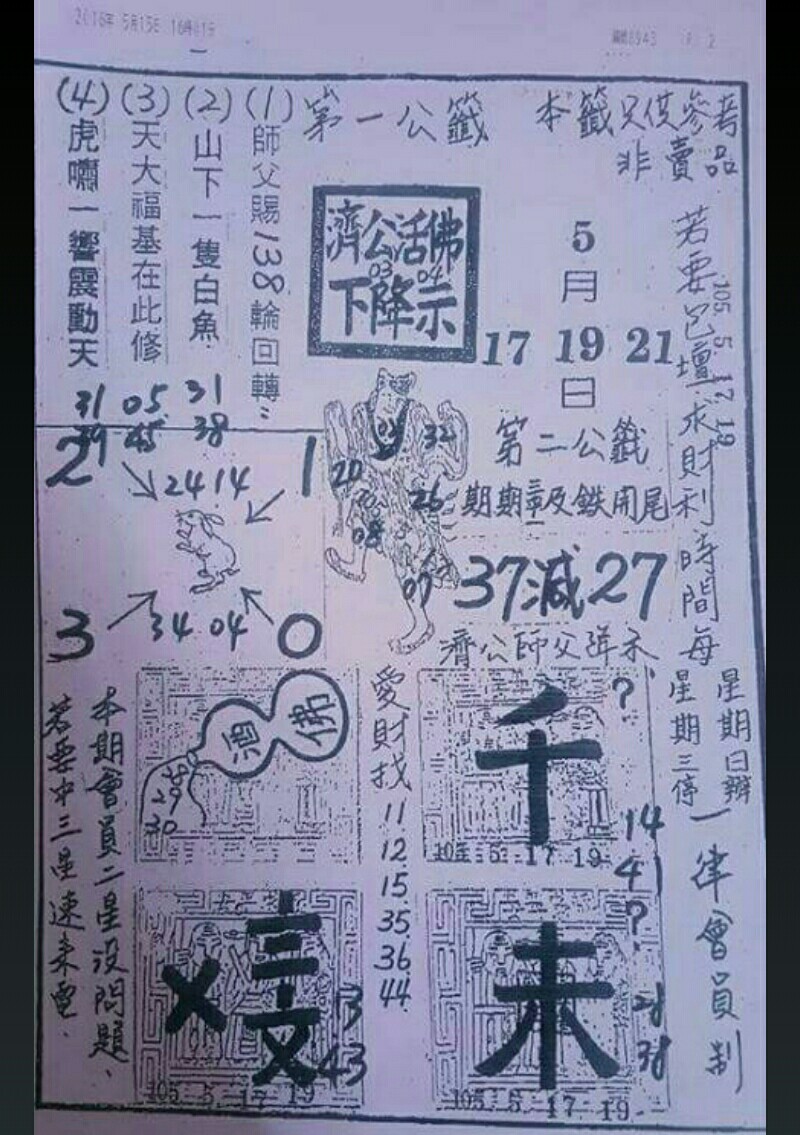 2016年 5月15日
第一公籤
本籤只供參考
非賣品
(1)師父賜138輪回轉"
(2)山下一隻白魚
(3)天大福基在此修
(4)虎嘯一響震動天
濟公活佛
03 04
下降示
5
月
17 19 21
日
若要包壇求財利時間每
星期日辦
星期三停
一律會員制
105 5. 17 19
31 05 31
39 45 38
2
1
24 14
34 04
3
0
32
20
26
08
07
第二公籤
期期三章及鉄開尾
37減27
濟公師父降示
佛
酒
29
30
愛財找
11
12
15
35
36
44
千
?
14
41
105 5. 17 19
未
?
38
105 5. 17 19
13
43
105 5. 17 19
本期會員二星沒問題、
若要中三星速來電.